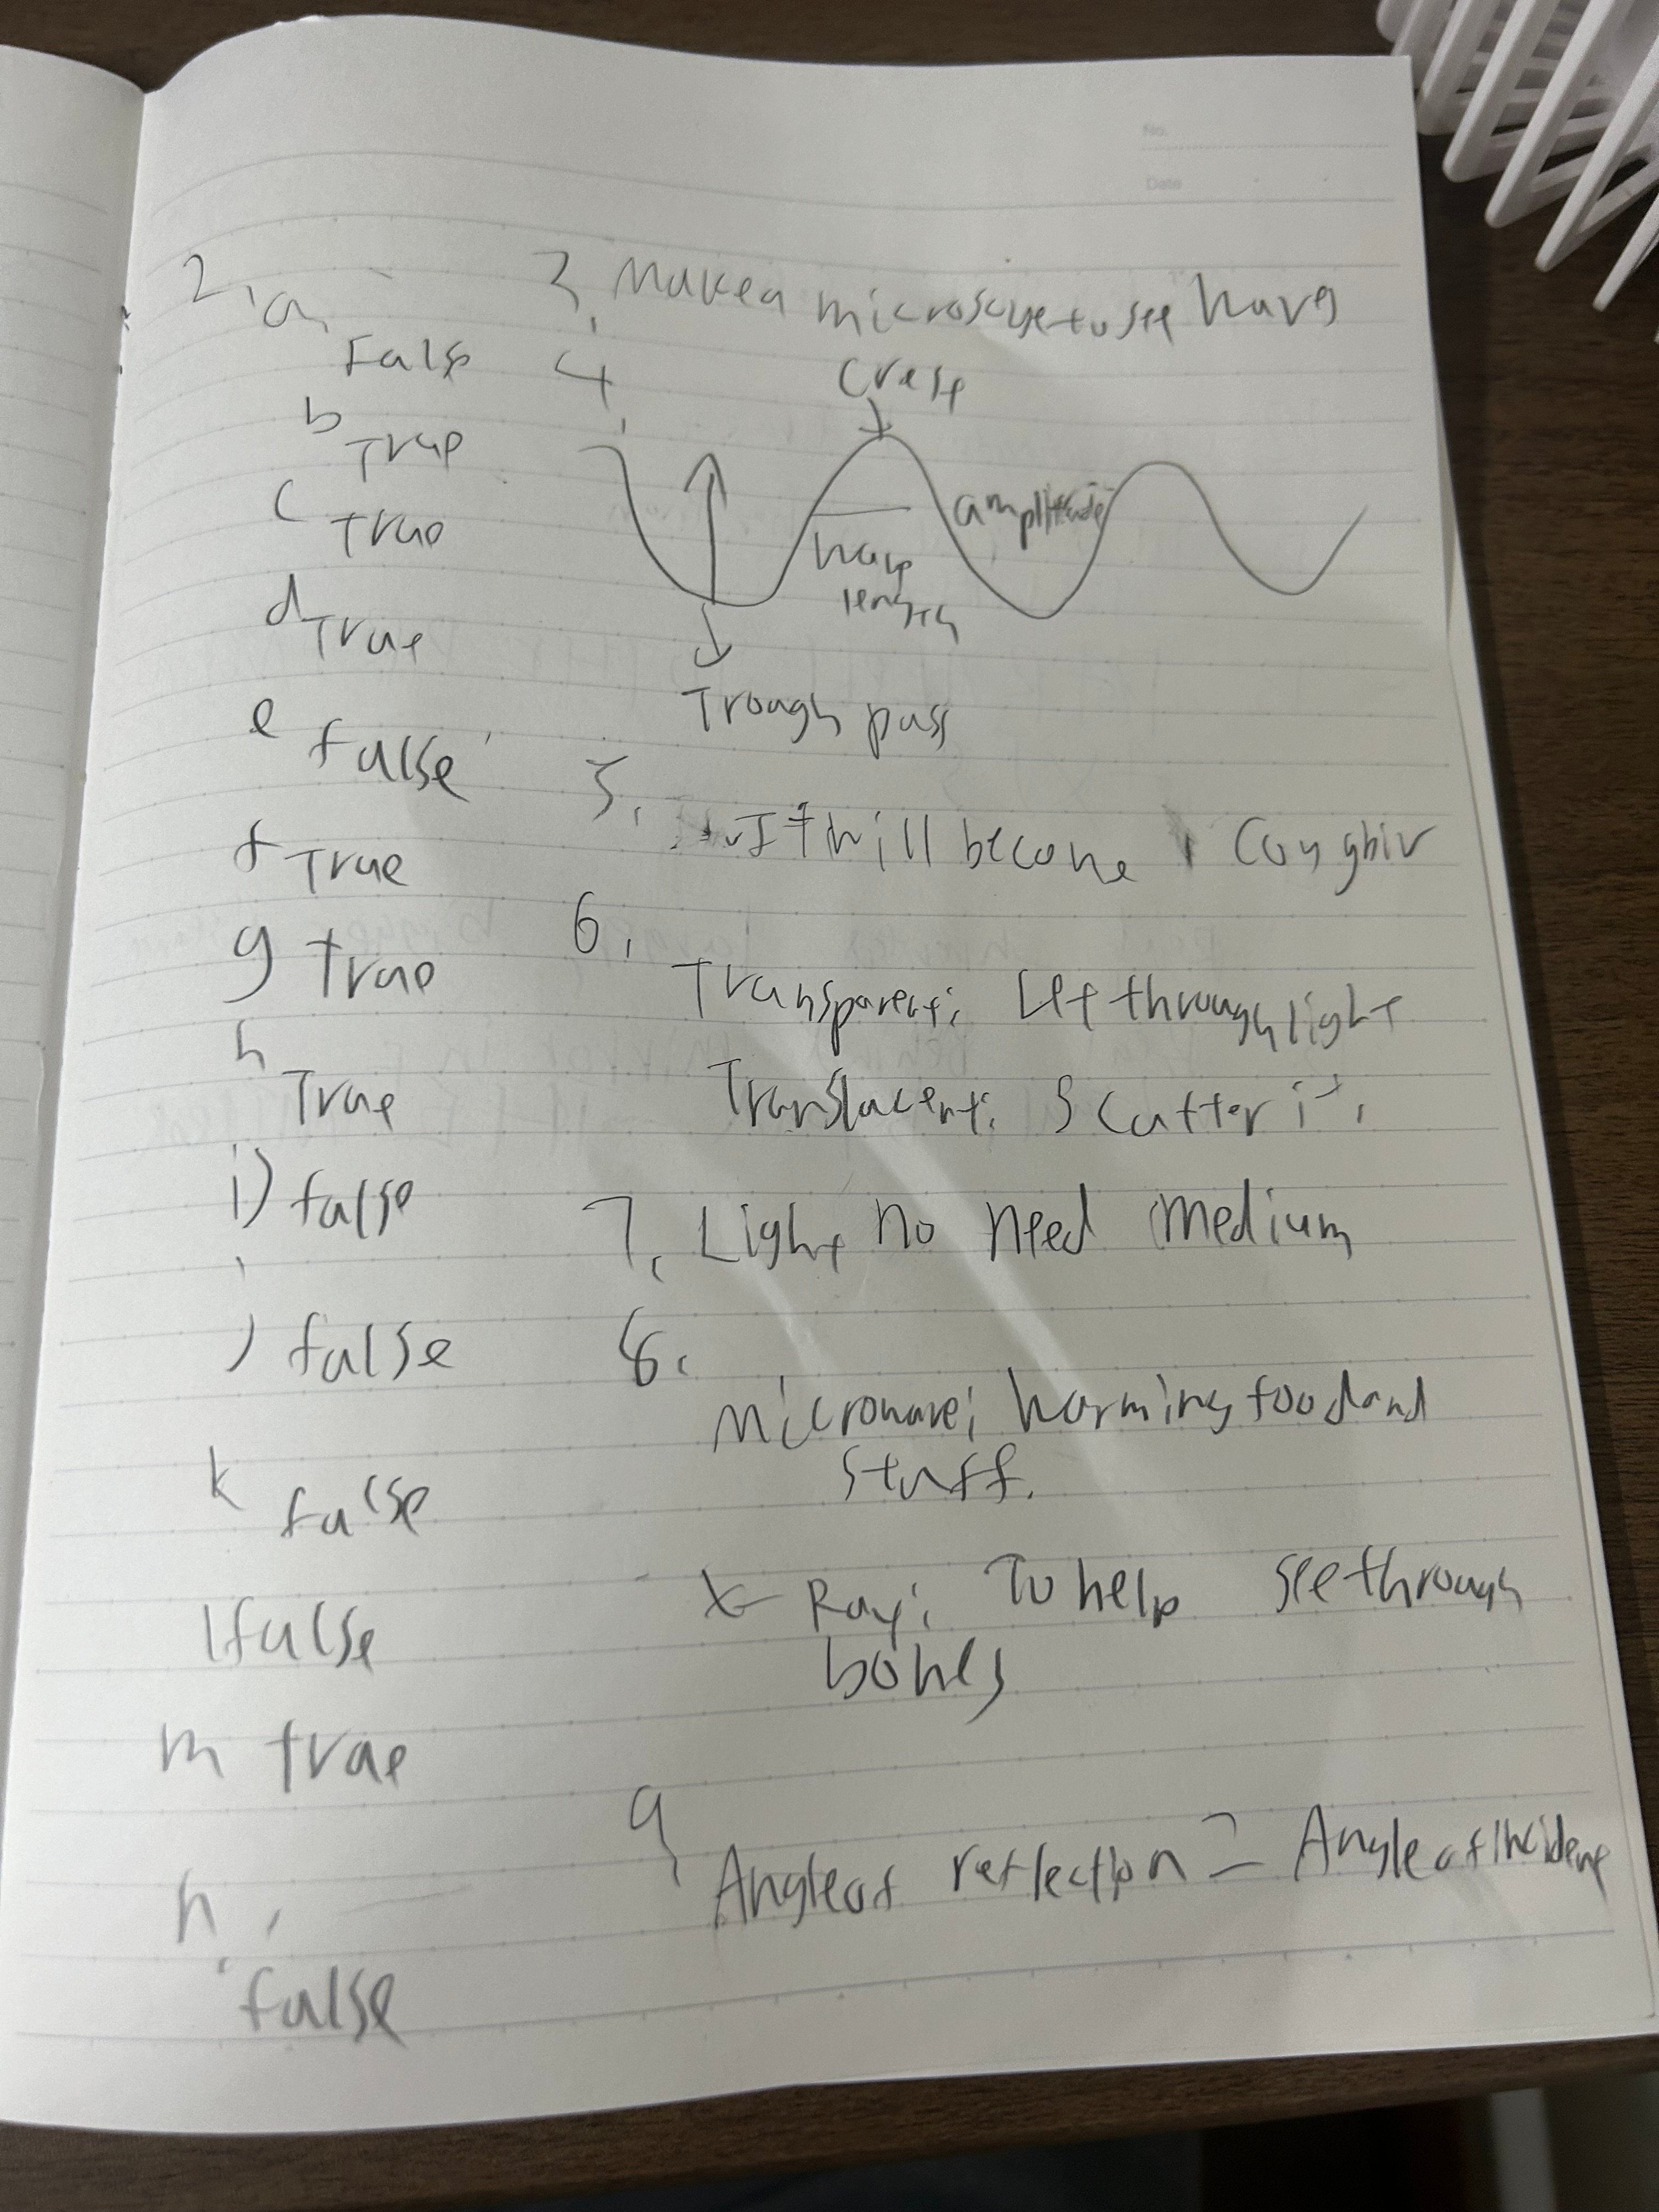 No.
Date
2. a.
False
b
True
c
True
d
True
e
false
f
True
g true
h
True
i) false
) false
k
false
l false
m true
n.
false
3. Make a microscope to see
4.
Crest
amplitude
wave
length
Trough pass
5. It will become
6.
Transparent: Let through light
Translucent: Scatter it.
7. Light no need medium
8.
Microwave: warming food and
stuff.
X-Ray: To help see through
bones
9
Angle of reflection = Angle of incidence